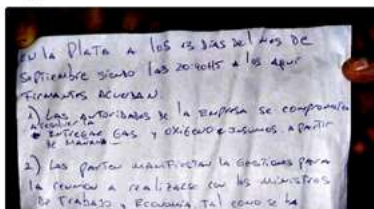 EN LA PLATA A los 13 DIAS Del MES DE
Septiembre siendo las 20:40HS a los AQUI
FIRMANTES ACUERDAN.
1) LAS AUTORIDADES DE LA EMPRESA SE COMPROMETEN
A RESOLVER LA
ENTREGAR GAS Y OXIGENO E INSUMOS. A PARTIR
DE MAÑANA
2) LAS PARTES MANIFIESTAN LA GESTIONES PARA
LA REUNION A REALIZARSE CON LOS MINISTROS
DE TRABAJO y ECONOMIA TAL COMO SE HA